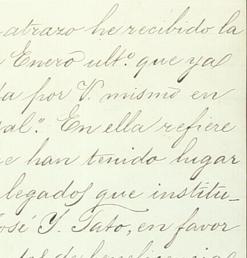 atrazo he recibido la
Enero ult.º que ya
la por V. mismo en
al." En ella refiere
e han tenido lugar
legados que institu-
José Y. Tato, en favor